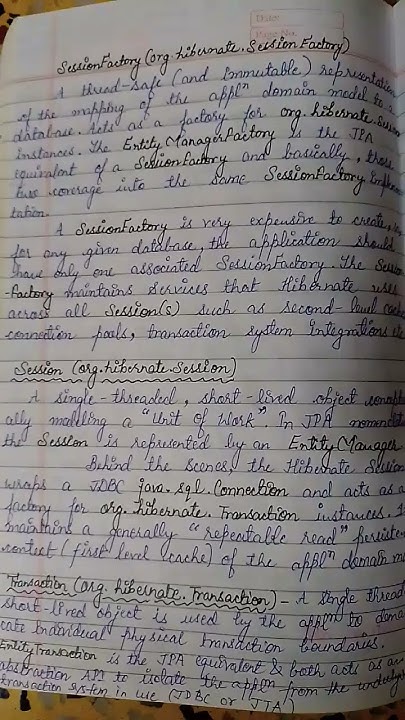 Date:
Page No.
SessionFactory (org.hibernate.Session Factory)
A thread-safe (and immutable) representation
of the mapping of the appln domain model to a
database. Acts as a factory for org.hibernate.Session
instances. The EntityManagerFactory is the JPA
equivalent of a SessionFactory and basically, those
two coverage into the same SessionFactory implemen
tation.
A SessionFactory is very expensive to create,
for any given database, the application should
have only one associated SessionFactory. The Session
-Factory maintains services that Hibernate uses
across all Session(s) such as second-level cache
connection pools, transaction system integrations etc
Session (org.hibernate.Session)
A single-threaded, short-lived object conceptu
ally modeling a "Unit of Work" In JPA nomenclature
the Session is represented by an EntityManager.
Behind the scenes the Hibernate Session
wraps a JDBC java.sql.Connection and acts as a
factory for org.hibernate.Transaction instances. It
maintains a generally "repeatable read" persistence
context (first level cache) of the appln domain mo
Transaction (org.hibernate.Transaction) - A single thread
short-lived object is used by the appln to demar
cate individual physical transaction boundaries.
EntityTransaction is the JPA equivalent & both acts as an
abstraction API to isolate the appln from the underlying
transaction system in use (JDBC or JTA)